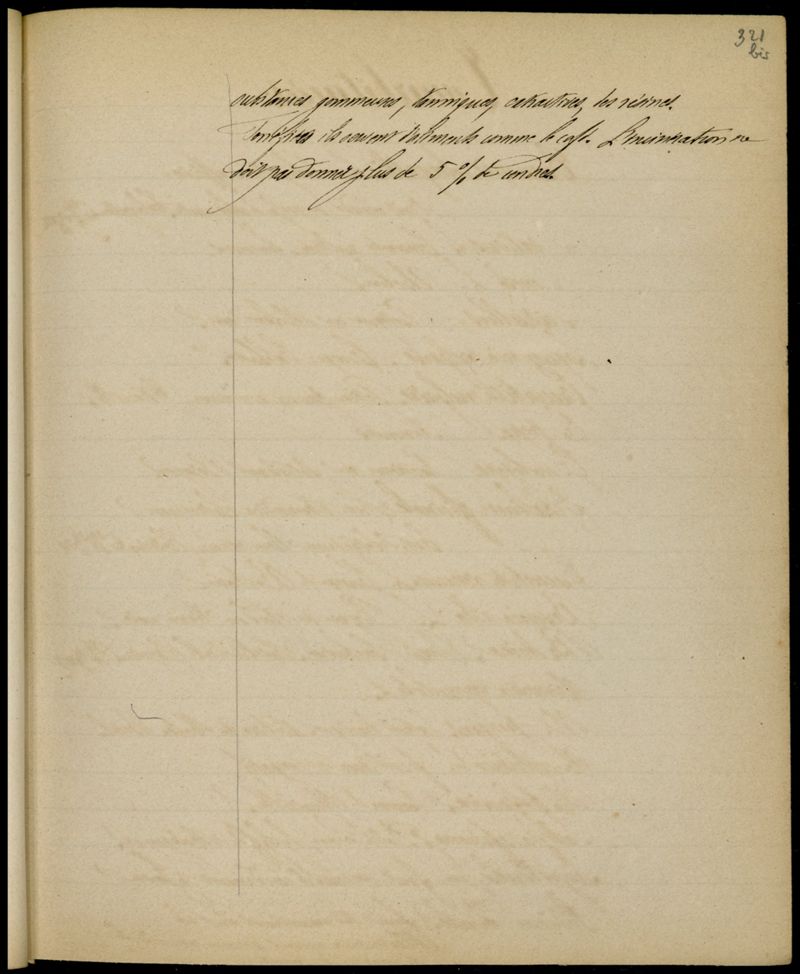 321
bis
substances gommeuses, tanniques, extractives, des résines.
Torréfiés ils servent d'aliments comme le café. L'incinération ne
doit pas donner plus de 5 % de cendres.